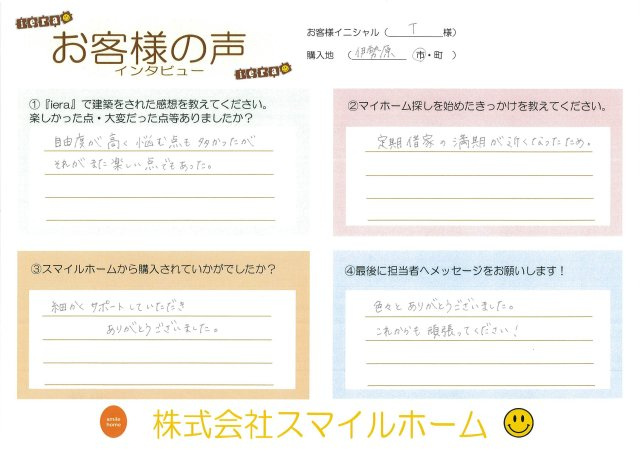 iera
お客様の声
インタビュー
iera
お客様イニシャル（ T 様）
購入地 （ 伊勢原 市・町 ）
①『iera』で建築をされた感想を教えてください。
楽しかった点・大変だった点等ありましたか？
自由度が高く悩む点も多かったが
それがまた楽しい点でもあった。
②マイホーム探しを始めたきっかけを教えてください。
定期借家の満期が近くなったため。
③スマイルホームから購入されていかがでしたか？
細かくサポートしていただき
ありがとうございました。
④最後に担当者へメッセージをお願いします！
色々とありがとうございました。
これからも頑張ってください！
smile
home
株式会社スマイルホーム